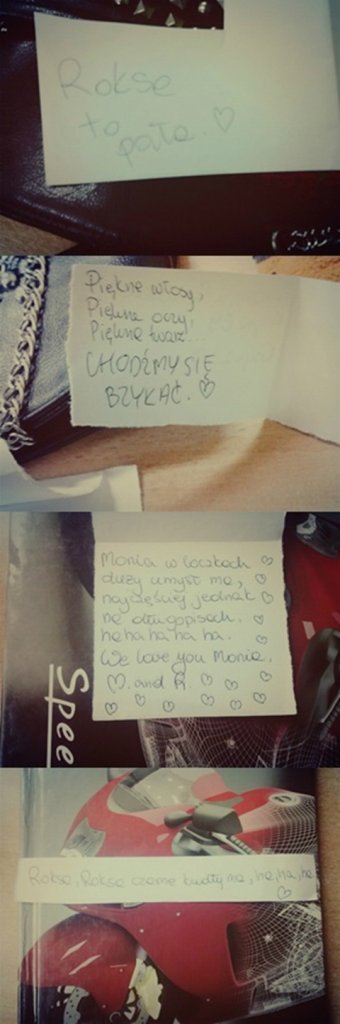 Rokse
to
pała. ♡
Piękne włosy,
Piękne oczy,
Piękna twarz...
CHODŹMY SIĘ
BZYKAĆ. ♡
Monia w loczkach
duży umysł ma,
najczęściej jednak
na długopisach.
ha ha ha ha ha.
We love you Monia.
M. and R.
Spee
Rokse, Rokse czarne kudły ma, ha, ha, ha